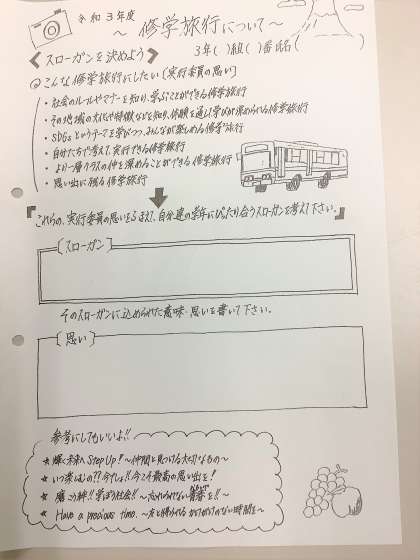 令和3年度
～修学旅行について～
3年( )組( )番氏名(
＜スローガンを決めよう＞
こんな修学旅行にしたい〔実行委員の思い〕
・社会のルールやマナーを知り、学ぶことができる修学旅行
・その地域の文化や特徴などを知り、体験を通して学びが深められる修学旅行
・SDGsというテーマを学びつつ、みんなが楽しめる修学旅行
・自分たちで考えて、実行できる修学旅行
・より一層クラスの仲を深めることができる修学旅行
・思い出に残る修学旅行
『これらの、実行委員の思いをふまえて、自分達の学年にぴったり合うスローガンを考えて下さい。』
〔スローガン〕
そのスローガンに込められた意味・思いを書いて下さい。
〔思い〕
参考にしてもいいよ!!
★輝く未来へStep Up!～仲間と見つける大切なもの～
★いつ楽しむの??今でしょ!!今こそ最高の思い出を!
★絆!!学ぼう社会!!～忘れられない青春を!!～
★Have a precious time.～友と輝かせるかけがえのない時間を～